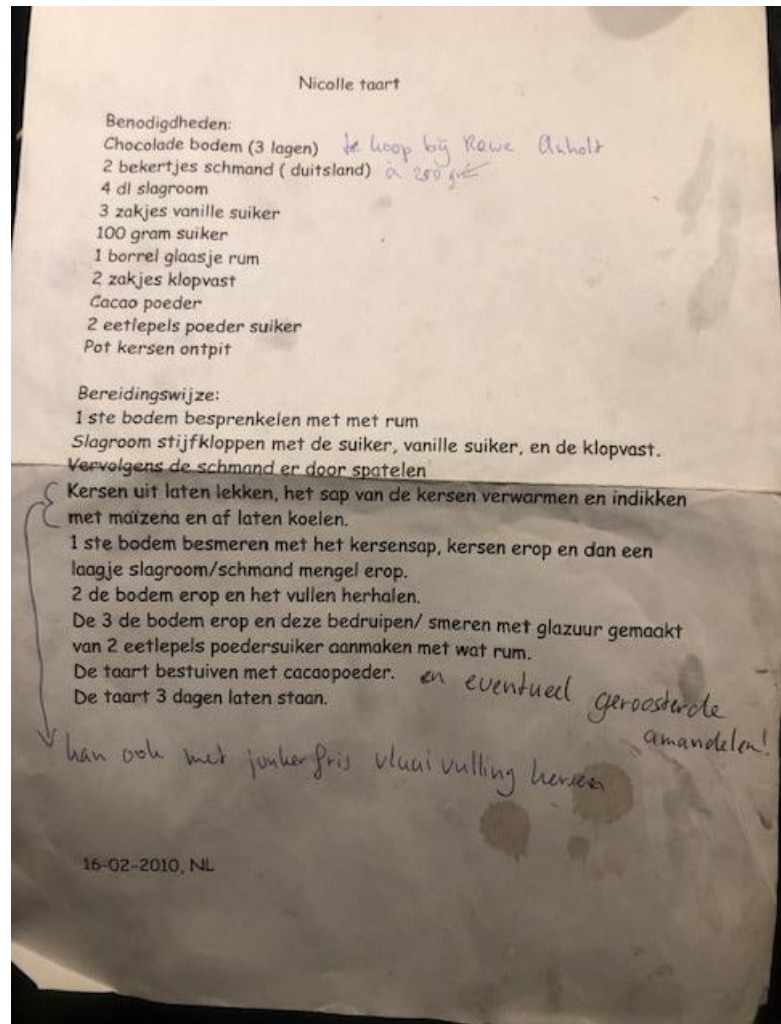 Nicolle taart
Benodigdheden:
Chocolade bodem (3 lagen) te koop bij Rewe Anholt
2 bekertjes schmand ( duitsland) à 200 gr
4 dl slagroom
3 zakjes vanille suiker
100 gram suiker
1 borrel glaasje rum
2 zakjes klopvast
Cacao poeder
2 eetlepels poeder suiker
Pot kersen ontpit
Bereidingswijze:
1 ste bodem besprenkelen met met rum
Slagroom stijfkloppen met de suiker, vanille suiker, en de klopvast.
Vervolgens de schmand er door spatelen
Kersen uit laten lekken, het sap van de kersen verwarmen en indikken
met maïzena en af laten koelen.
1 ste bodem besmeren met het kersensap, kersen erop en dan een
laagje slagroom/schmand mengel erop.
2 de bodem erop en het vullen herhalen.
De 3 de bodem erop en deze bedruipen/ smeren met glazuur gemaakt
van 2 eetlepels poedersuiker aanmaken met wat rum.
De taart bestuiven met cacaopoeder. en eventueel geroosterde
amandelen!
De taart 3 dagen laten staan.
kan ook met jonker fris vlaaivulling kersen
16-02-2010, NL